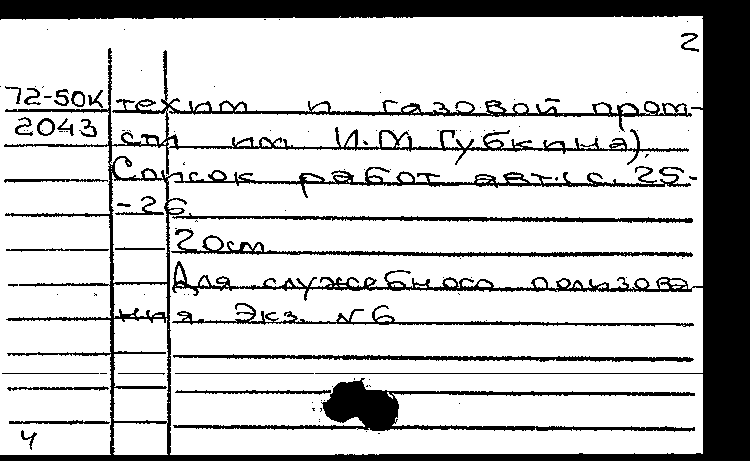 2
72-50к техим и газовой пром-
2043 сти им И.М Губкина).
Список работ авт.: с. 25-
-26.
20см
Для служебного пользова-
ния. Экз. N 6
4